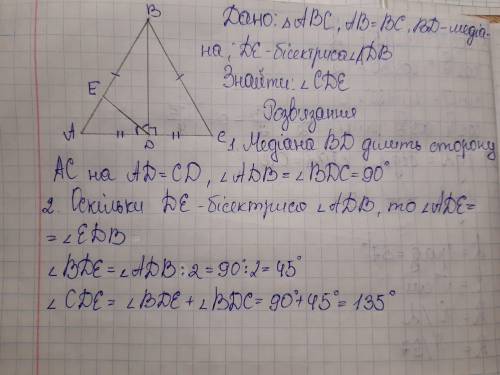 B
E
A
D
C
Дано: △ABC, AB=BC, BD-медіа-
на; DE-бісектриса∠ADB
Знайти: ∠CDE
Розвязання
1. Медіана BD ділить сторону
AC на AD=CD, ∠ADB=∠BDC=90°
2. Оскільки DE-бісектриса ∠ADB, то ∠ADE=
=∠EDB
∠BDE=∠ADB:2=90°:2=45°
∠CDE=∠BDE+∠BDC=90°+45°=135°